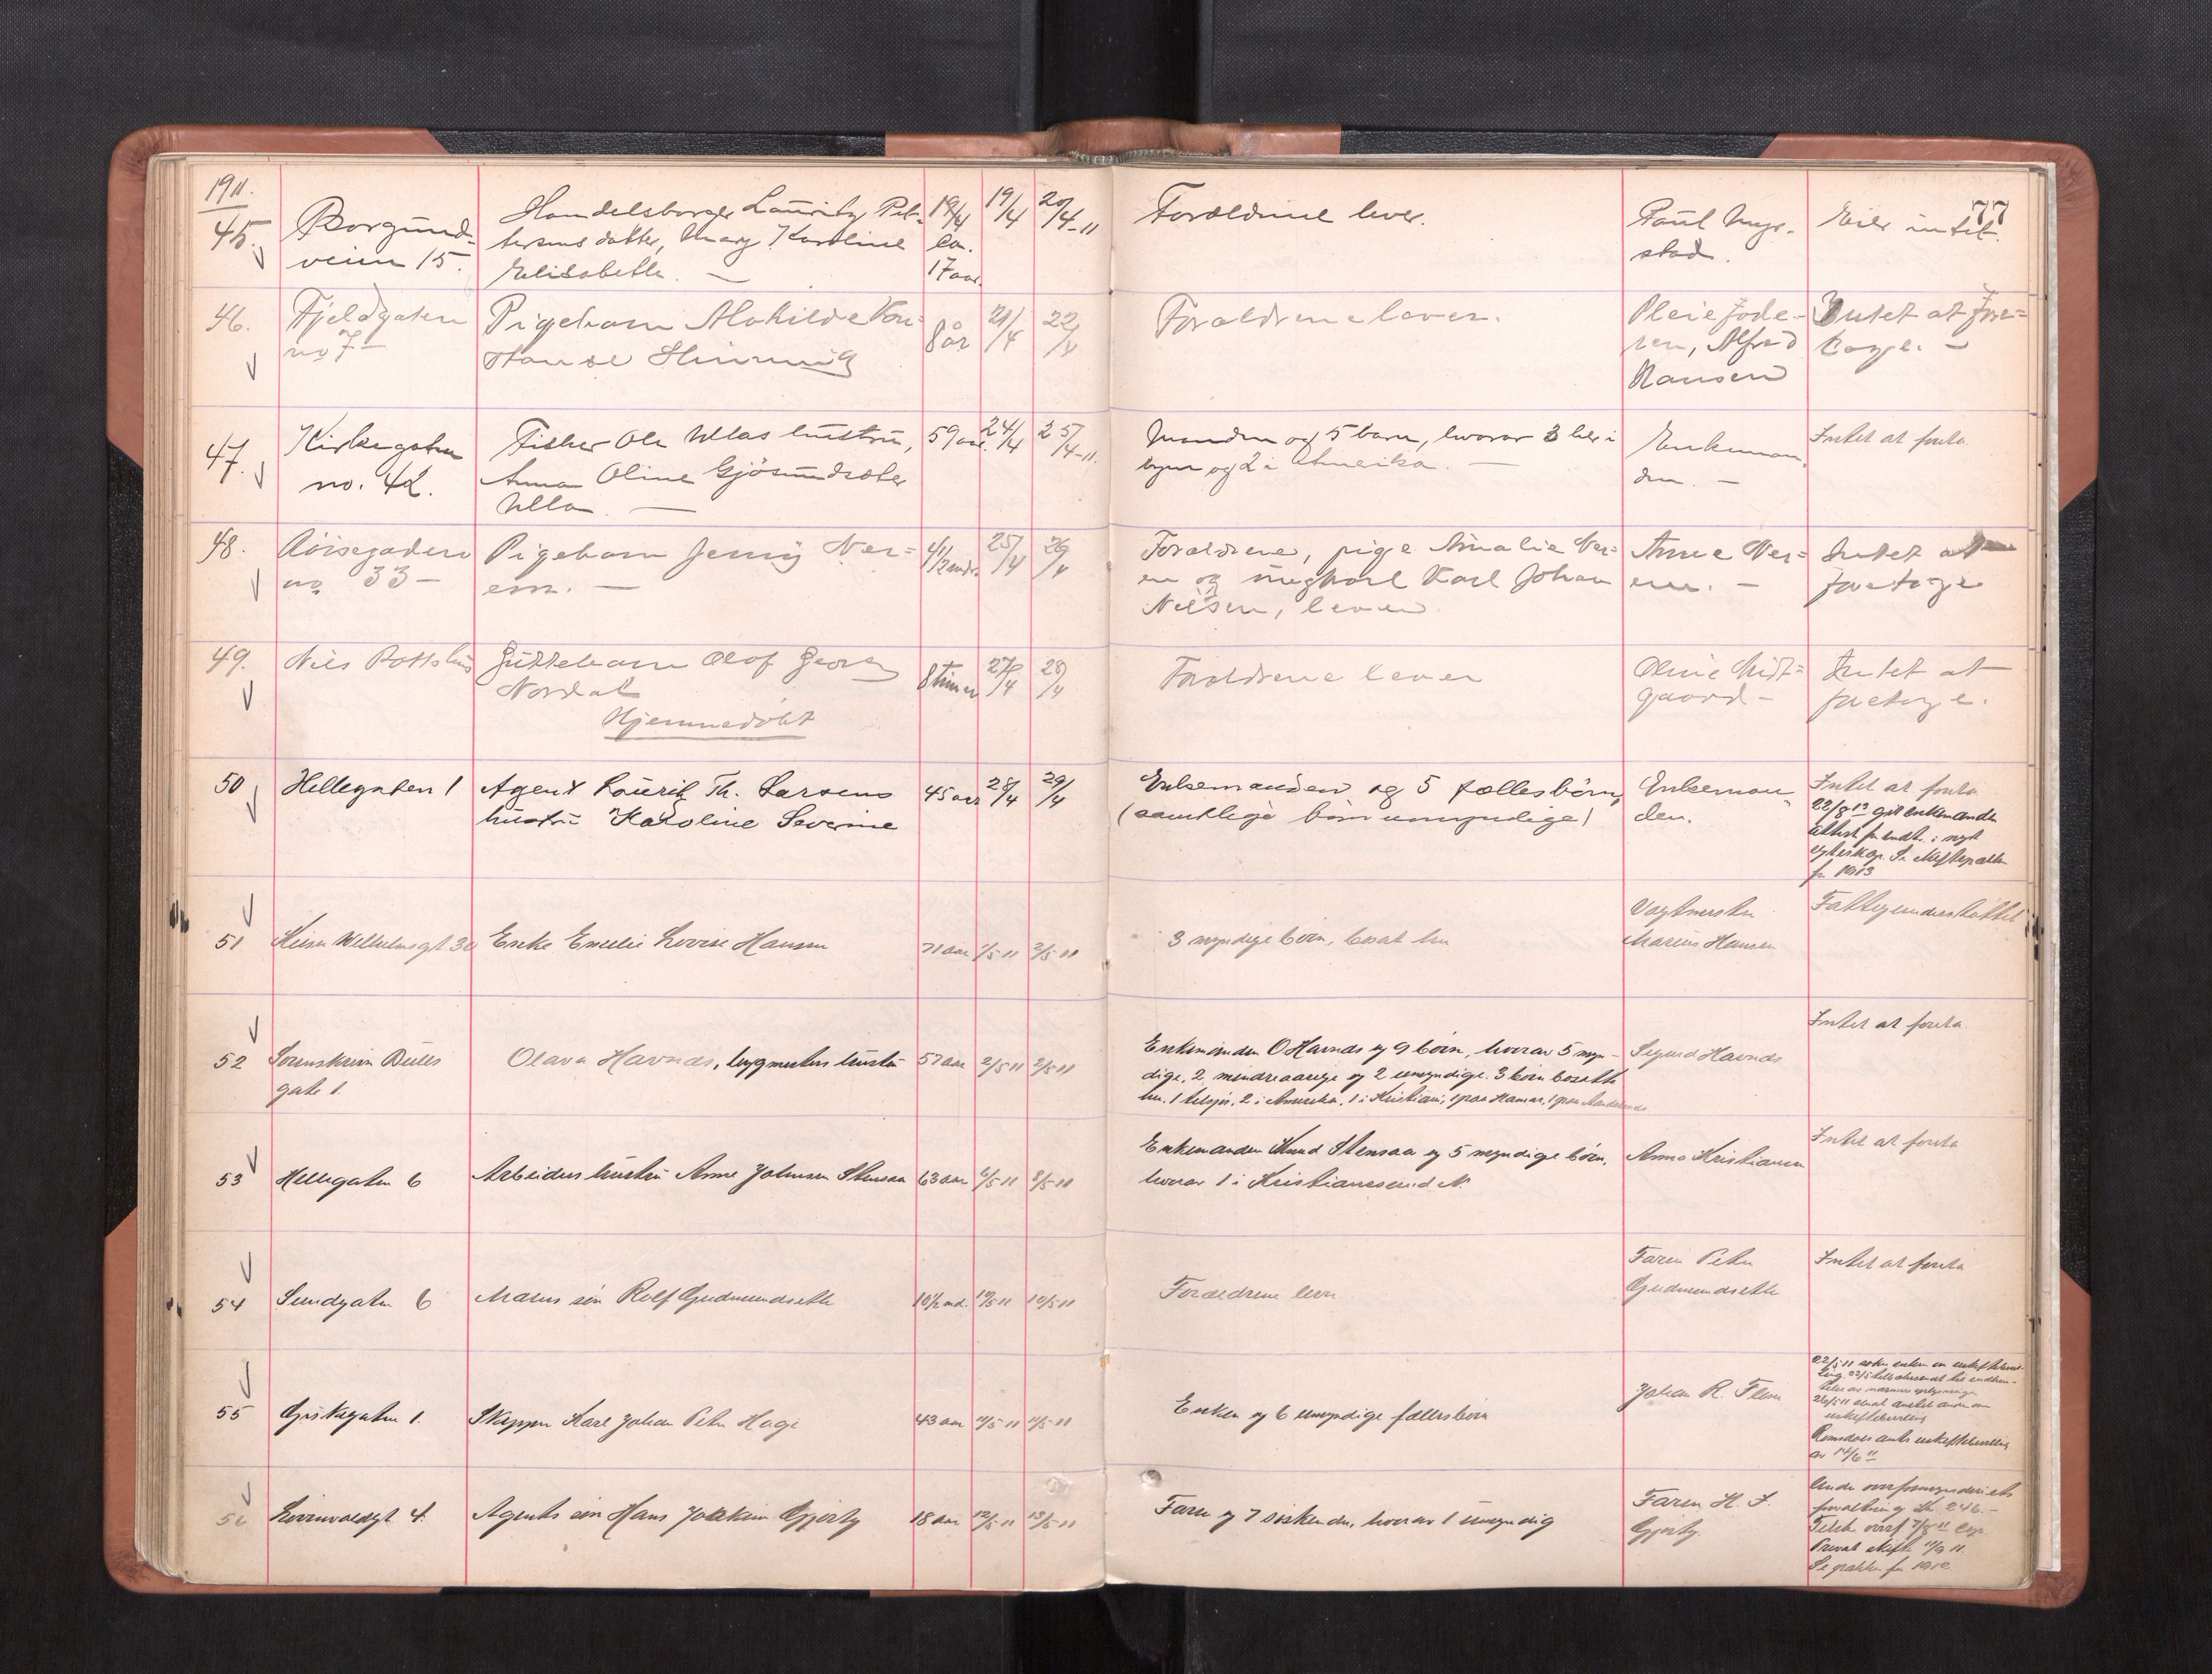 1911.
77
45.
Borgund-
veien 15.
Handelsborger Lauritz Pet-
tersens datter, Mary Karoline
Elisabeth. —
19/4
ca.
17 aar.
19/4
20/4-11
Forældrene lever.
Paul Myr-
stad.
Eier intet.
46.
Fjeldgaten
no 7 —
Pigebarn Mathilde Kon-
stanse
8 år
21/4
22/4
Forældrene lever.
Pleiefode-
ren, Alfred
Hansen
Intet at fore-
tage. —
47.
Kirkegaten
no. 42.
Fisker Ole Ullas hustru,
Anna Oline Gjøsundsæter
Ulla. —
59 aar.
24/4
25/4-11.
Manden og 5 barn, hvorav 3 her i
byen og 2 i Amerika. —
Enkeman-
den. —
Intet at foreta
48.
Røisegaden
no 33 —
Pigebarn Jenny Ner-
em. —
4 1/2 mdr.
25/4
26/4
Forældrene, pige Amalie Ner-
em og ungkarl Karl Johan
Nilsen, lever
Anne Ner-
em. —
Intet at
foretage
49.
Nils
Guttebarn Olof Georg
Nordal
Hjemmedøbt
8 timer
27/4
28/4
Forældrene lever
Oline Midt-
gaard —
Intet at
foretage.
50
Hellegaten 1
Agent Laurik Th. Larsens
hustru Karoline Severine
45 aar
28/4
29/4
Enkemanden og 5 fællesbørn,
(samtlige børn umyndige)
Enkeman-
den.
Intet at foreta
22/8 13 git enkemanden
attest for indtr. i nyt
egteskap. Se skifteprotok.
for 1913
51
Keiser Wilhelmsgt 30
Enke Emilie Lovise Hansen
71 aar
1/5 11
2/5 11
3 myndige børn, bosat her
Vagtmester
Marius Hansen
Fattigunderstøttet
52
Sorenskriver Bulls
gate 1.
Olava Havnås, bygmesters hustru
57 aar
2/5 11
2/5 11
Enkemanden O Havnås og 9 børn, hvorav 5 myn-
dige, 2 mindreaarige og 2 umyndige. 3 børn bosatte
her, 1 tilsjøs, 2 i Amerika, 1 i Kristiania, 1 paa Hamar, 1 paa
Sigurd Havnås
Intet at foreta
53
Hellegaten 6
Arbeiders hustru Anne Johnsen Stensaa
63 aar
6/5 11
8/5 11
Enkemanden Knud Stensaa og 5 myndige børn,
hvorav 1 i Kristianssund N.
Anna Kristiansen
Intet at foreta
54
Sundgaten 6
Malers søn Rolf Gudmundsæth
10 1/2 md.
10/5 11
Forældrene lever
Faren Peter
Gudmundsæth
Intet at foreta
55
Giskegaten 1.
Skipper Karl Johan Peter Hage
43 aar
11/5 11
Enken og 6 umyndige fællesbørn
Johan R. Flem
Romsdals amts uskiftebevilling
av 14/6 11
56
Lorenvoldgt 4.
Agents søn Hans Joakim Gjørtz
18 aar
12/5 11
13/5 11
Faren og 7 søskende, hvorav 1 umyndig
Faren H. J.
Gjørtz
Under overformynderiets
forvaltning Kr. 246.—
Privat skifte 11/9 11.
Se protokol for 1912